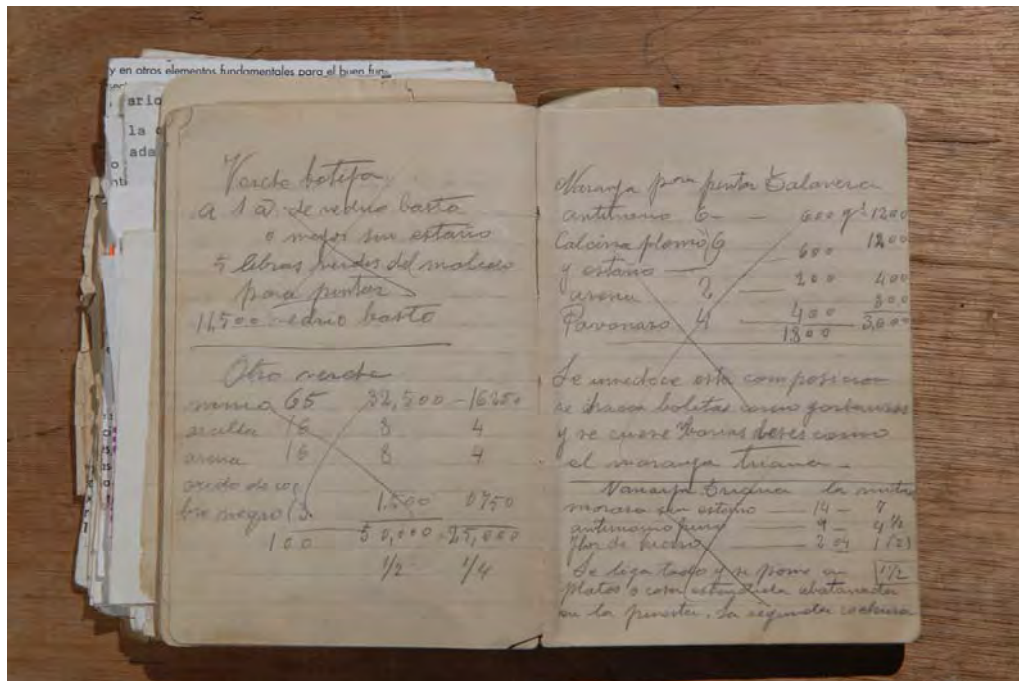 y en otros elementos fundamentales para el buen fun
ario
la
ada
Verde botija
a 1 @ de vedrio basto
o mejor sin estaño
5 libras verdes del molido
para pintar
11,500 vedrio basto
Otro verde
minio 65 32,500 - 16250
arcilla 16 8 4
arena 16 8 4
oxido de co
bre negro 3 1.500 0750
100 50,000 25,000
1/2 1/4
Naranja para pintar Talavera
antimonio 6 - 600 gs 1200
Calcina plomo 6 600 1200
y estaño
arena 2 200 400
Pavonazo 4 400 800
1800 3,600
Se umedece esta composicion
se hacen bolitas como garbanzos
y se cuese barias beses como
el naranja triana
Naranja Triana la mitad
sin estaño 14 - 7
antimonio puro 9 - 4 1/2
flor de 2 04 1 (2)
Se liga todo y se pone en 1 1/2
platos o con
en la puerta. La segunda cochura